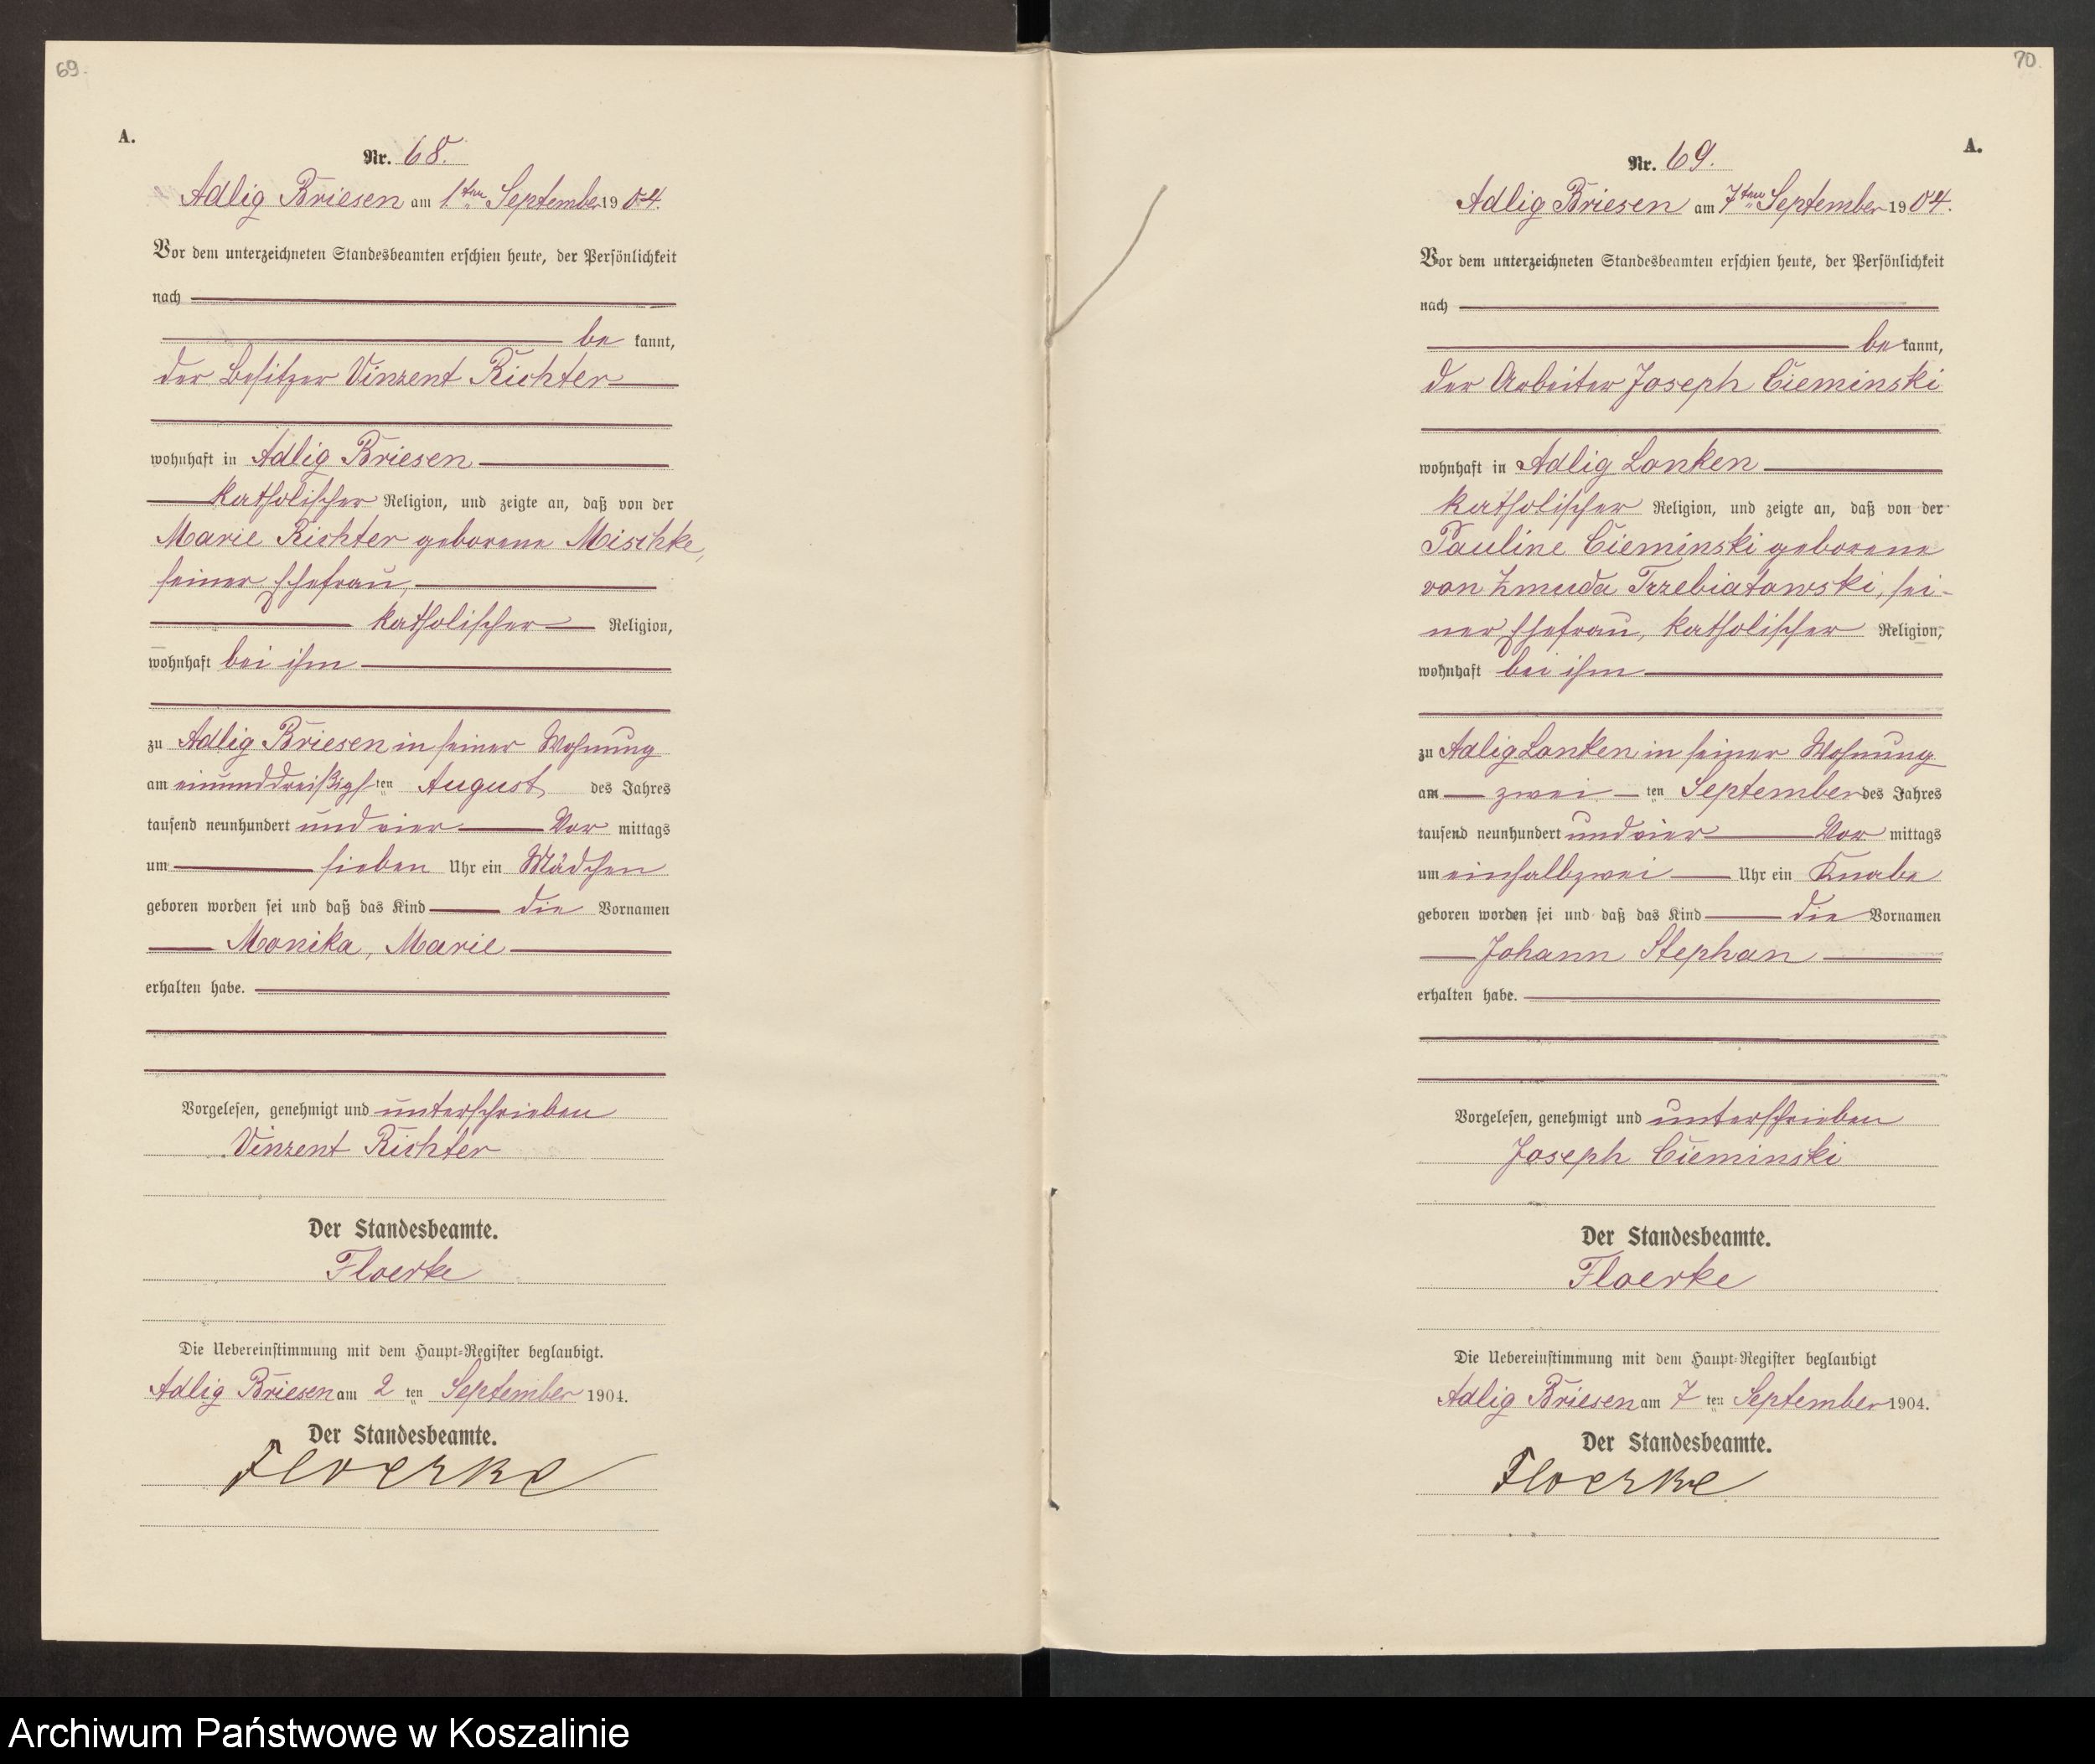 69.
A.
Nr. 68.
Adlig Briesen am 1ten September 1904.
Vor dem unterzeichneten Standesbeamten erschien heute, der Persönlichkeit
nach
be kannt,
der Besitzer Vinzent Richter
wohnhaft in Adlig Briesen
katholischer Religion, und zeigte an, daß von der
Marie Richter geborene Mischke,
seiner Ehefrau,
katholischer Religion,
wohnhaft bei ihm
zu Adlig Briesen in seiner Wohnung
am einunddreißigsten August des Jahres
tausend neunhundert und vier Vor mittags
um sieben Uhr ein Mädchen
geboren worden sei und daß das Kind die Vornamen
Monika, Marie
erhalten habe.
Vorgelesen, genehmigt und unterschrieben
Vinzent Richter
Der Standesbeamte.
Floerke
Die Uebereinstimmung mit dem Haupt-Register beglaubigt.
Adlig Briesen am 2 ten September 1904.
Der Standesbeamte.
Floerke
70.
A.
Nr. 69.
Adlig Briesen am 7ten September 1904.
Vor dem unterzeichneten Standesbeamten erschien heute, der Persönlichkeit
nach
be kannt,
der Arbeiter Joseph Cieminski
wohnhaft in Adlig Lonken
katholischer Religion, und zeigte an, daß von der
Pauline Cieminski geborene
von Zmuda Trzebiatowski, sei-
ner Ehefrau, katholischer Religion,
wohnhaft bei ihm
zu Adlig Lonken in seiner Wohnung
am zwei ten September des Jahres
tausend neunhundert und vier Vor mittags
um einhalbzwei Uhr ein Knabe
geboren worden sei und daß das Kind die Vornamen
Johann Stephan
erhalten habe.
Vorgelesen, genehmigt und unterschrieben
Joseph Cieminski
Der Standesbeamte.
Floerke
Die Uebereinstimmung mit dem Haupt-Register beglaubigt
Adlig Briesen am 7 ten September 1904.
Der Standesbeamte.
Floerke
Archiwum Państwowe w Koszalinie